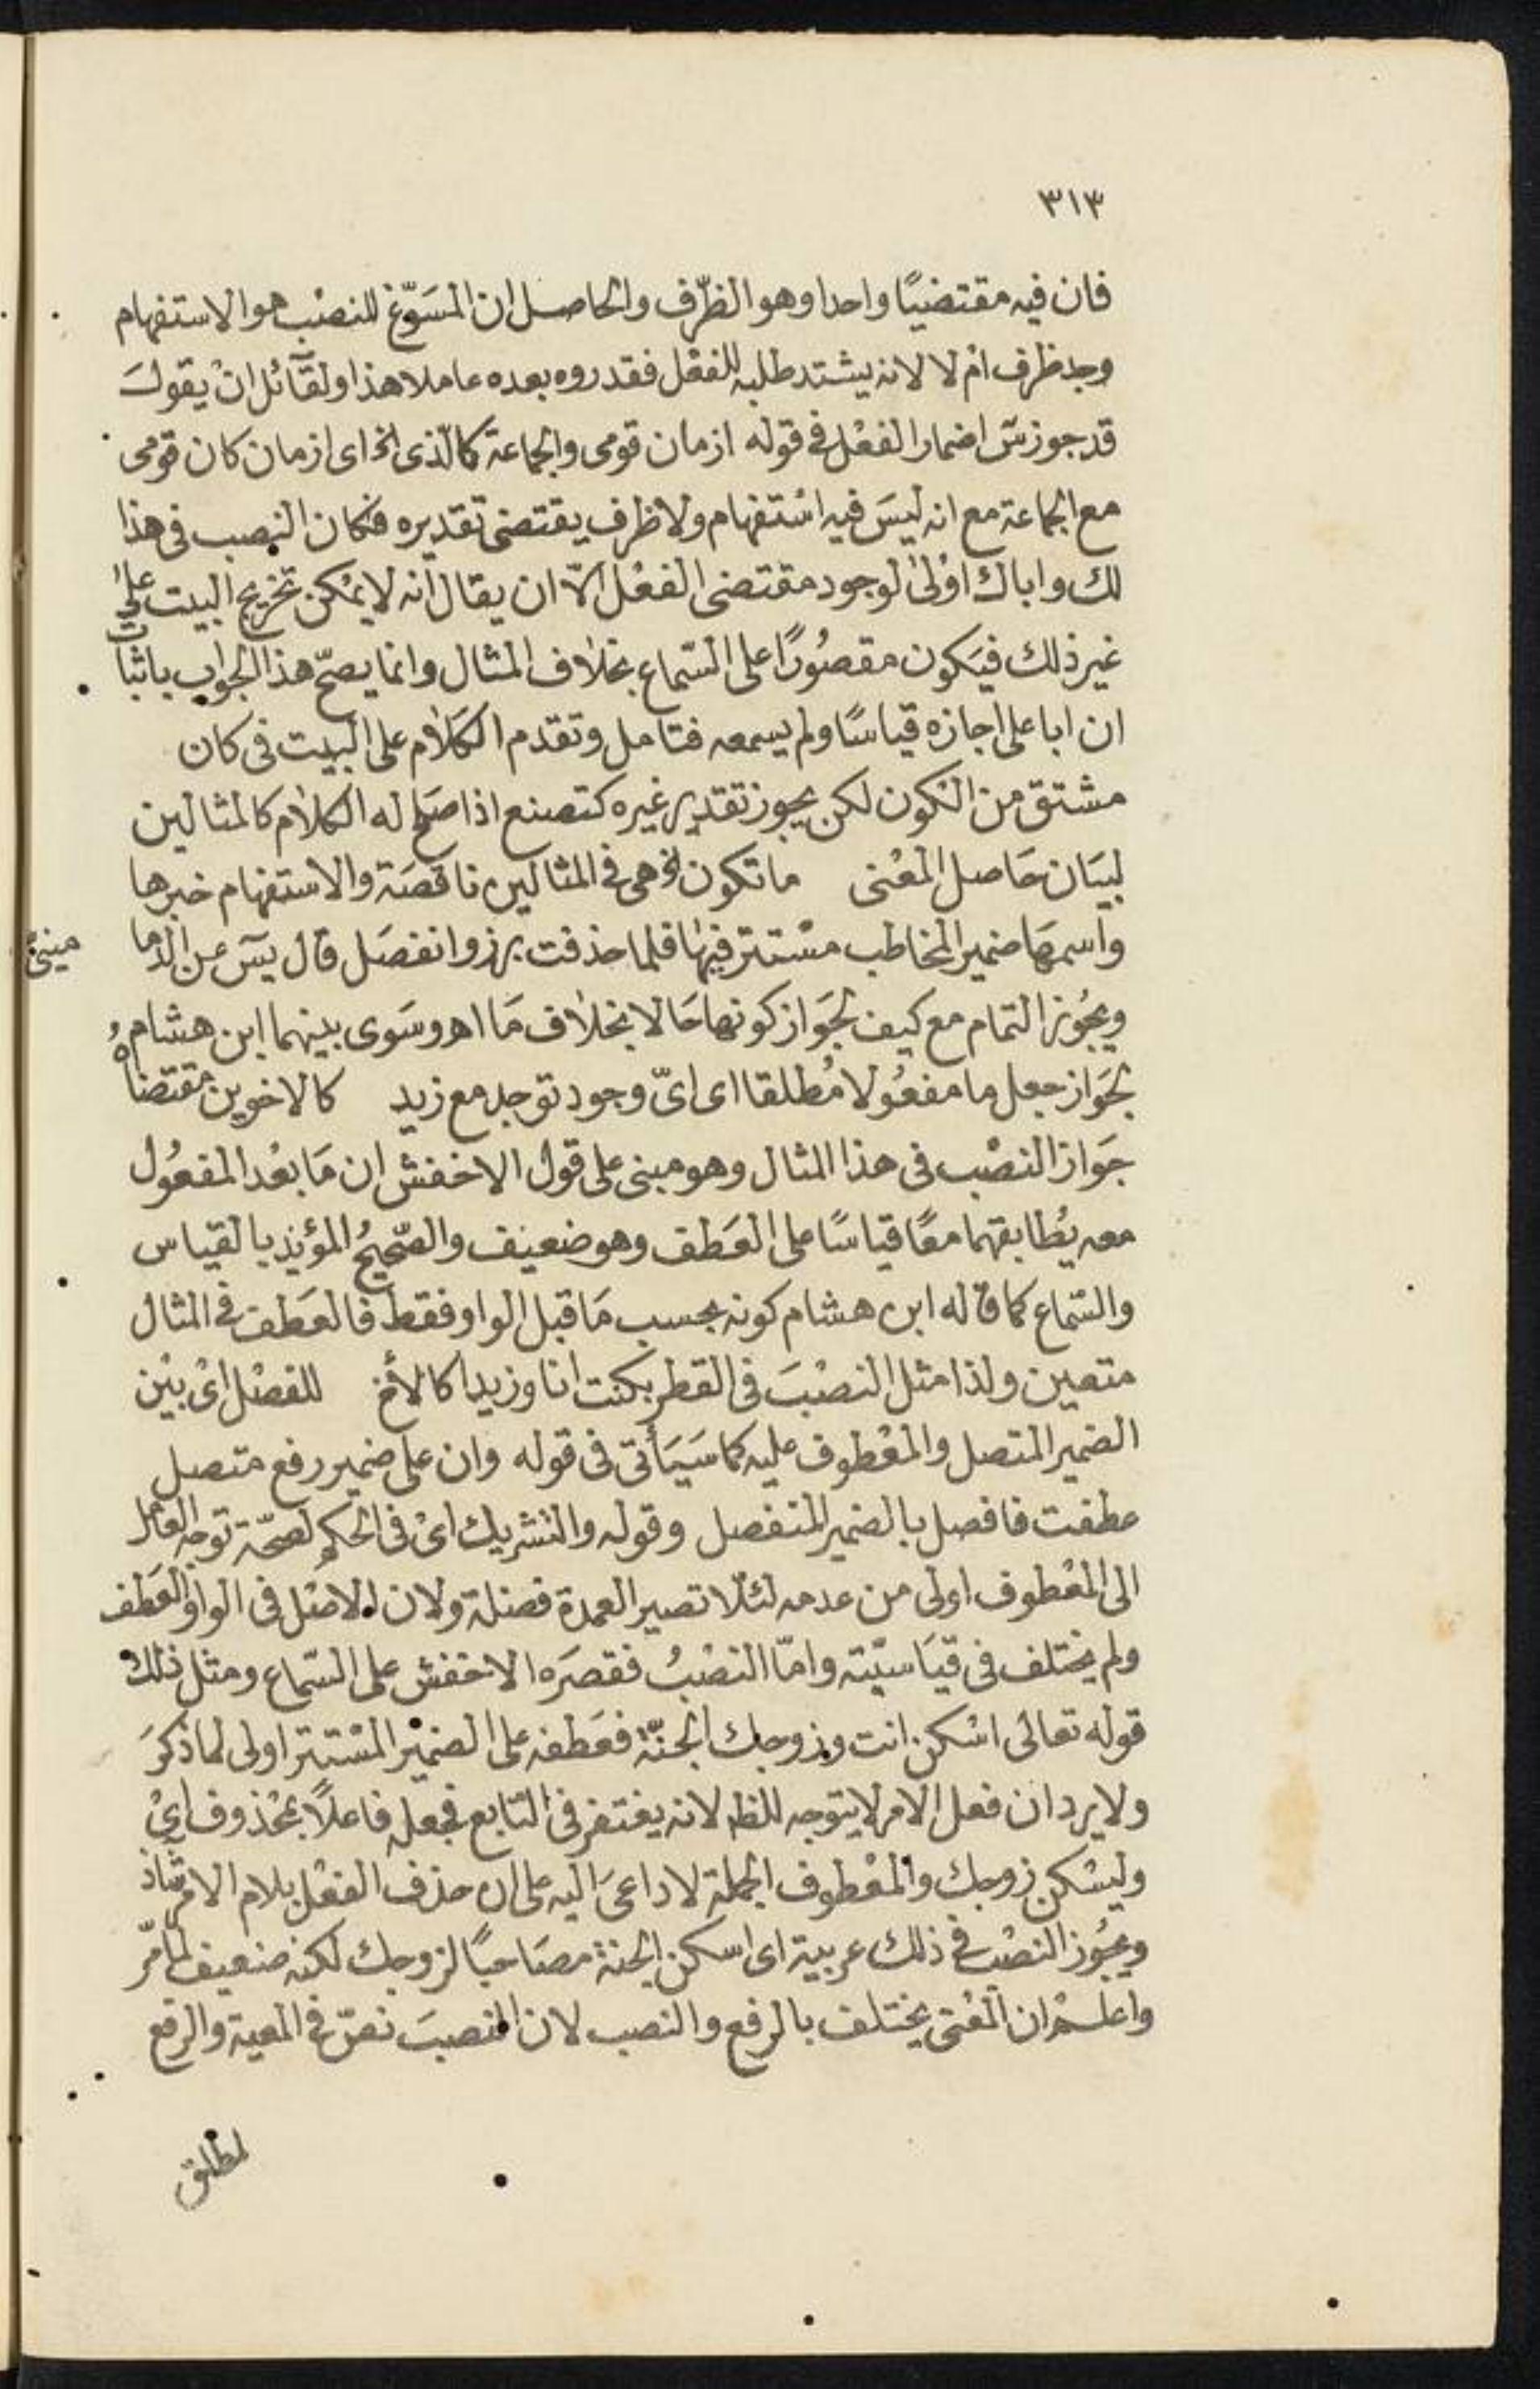 ٣١٣
فان فيه مقتضيًا واحدا وهو الظّرف والحاصل ان المسَوّغ للنصْب هو الاستفهام
وجد ظرف امْ لا لانه يشتد طلبه للفعْل فقدروه بعده عاملا هذا ولقآئل انْ يقولَ
قد جوز سٓ اضمار الفعْل فى قوله ازمان قومى والجماعة كالّذى الخ اى ازمان كان قومى
مع الجماعة مع انه ليسَ فيه اسْتفهام ولا ظرف يقتضى تقديره فكان النصب فى هذا
لك واباك اوْلىٰ لوجود مقتضى الفعْل الّا ان يقال انه لا يمْكن تخريج البيت على
غير ذلك فيَكون مقصُورًا على السّماع بخلاف المثال وانما يصحّ هذا الجواب باثبات
ان ابا على اجازه قياسًا ولم يسمعه فتامل وتقدم الكلام على البيت فى كان
مشتق من الكون لكن يجوز تقدير غيره كتصنع اذا صَلح له الكلام كالمثالين
لبيَان حَاصل المعْنى ما تكون الخ هى فى المثالين ناقصَة والاستفهام خبرها
واسمهَا ضمير المخاطب مسْتتر فيهَا فلما حذفت برز وانفصَل قال يسٓ عن الدما مينىْ
ويجُوز التمام مع كيف لجَواز كونها حَالا بخلاف مَا اهـ وسَوى بينهما ابن هشام
لجَواز جعل ما مفعُولا مُطلقا اى اىّ وجود توجد مع زيد كالاخوين مقتضاهُ
جَواز النصْب فى هذا المثال وهو مبنى على قول الاخفش ان مَا بعْد المفعُول
معه يُطابقهما معًا قياسًا على العَطف وهو ضعيف والصّحيحُ المؤيد بالقياس
والسّماع كما قاله ابن هشام كونه بحسب مَا قبل الواو فقط فالعَطف فى المثال
متعين ولذا مثل النصْبَ فى القطر بكنت انا وزيدا كالأخ للفصْل اىْ بيْن
الضمير المتصل والمعْطوف عليه كما سَيَأتى فى قوله وان على ضمير رفع متصل
عطفت فافصل بالضمير المنفصل وقوله والتشريك اىْ فى الحكم لصحّة توجه العامل
الى المعْطوف اولى من عدمه لئلّا تصير العمدة فضلة ولان الاصْل فى الواو العَطف
ولم يختلف فى قيَاسيّته وامّا النصْبُ فقصَره الاخفش على السّماع ومثل ذلك
قوله تعالى اسْكن انت وزوجك الجنّة فعَطفه على الضمير المسْتتر اولى لما ذكرَ
ولا يرد ان فعل الامر لا يتوجه للظ لانه يغتفر فى التابع فجعله فاعلاً بمحْذوف اىْ
وليسْكن زوجك والمعْطوف الجملة لا داعىَ اليه على ان حذف الفعْل بلام الامر شاذ
ويجُوز النصْب فى ذلك عربية اى اسكن الجنة مصَاحبًا لزوجك لكنه ضعيف لما مّر
واعلم ان المعْنى يختلف بالرفع والنصب لان النصبَ نصّ فى المعية والرفع
لمطلق